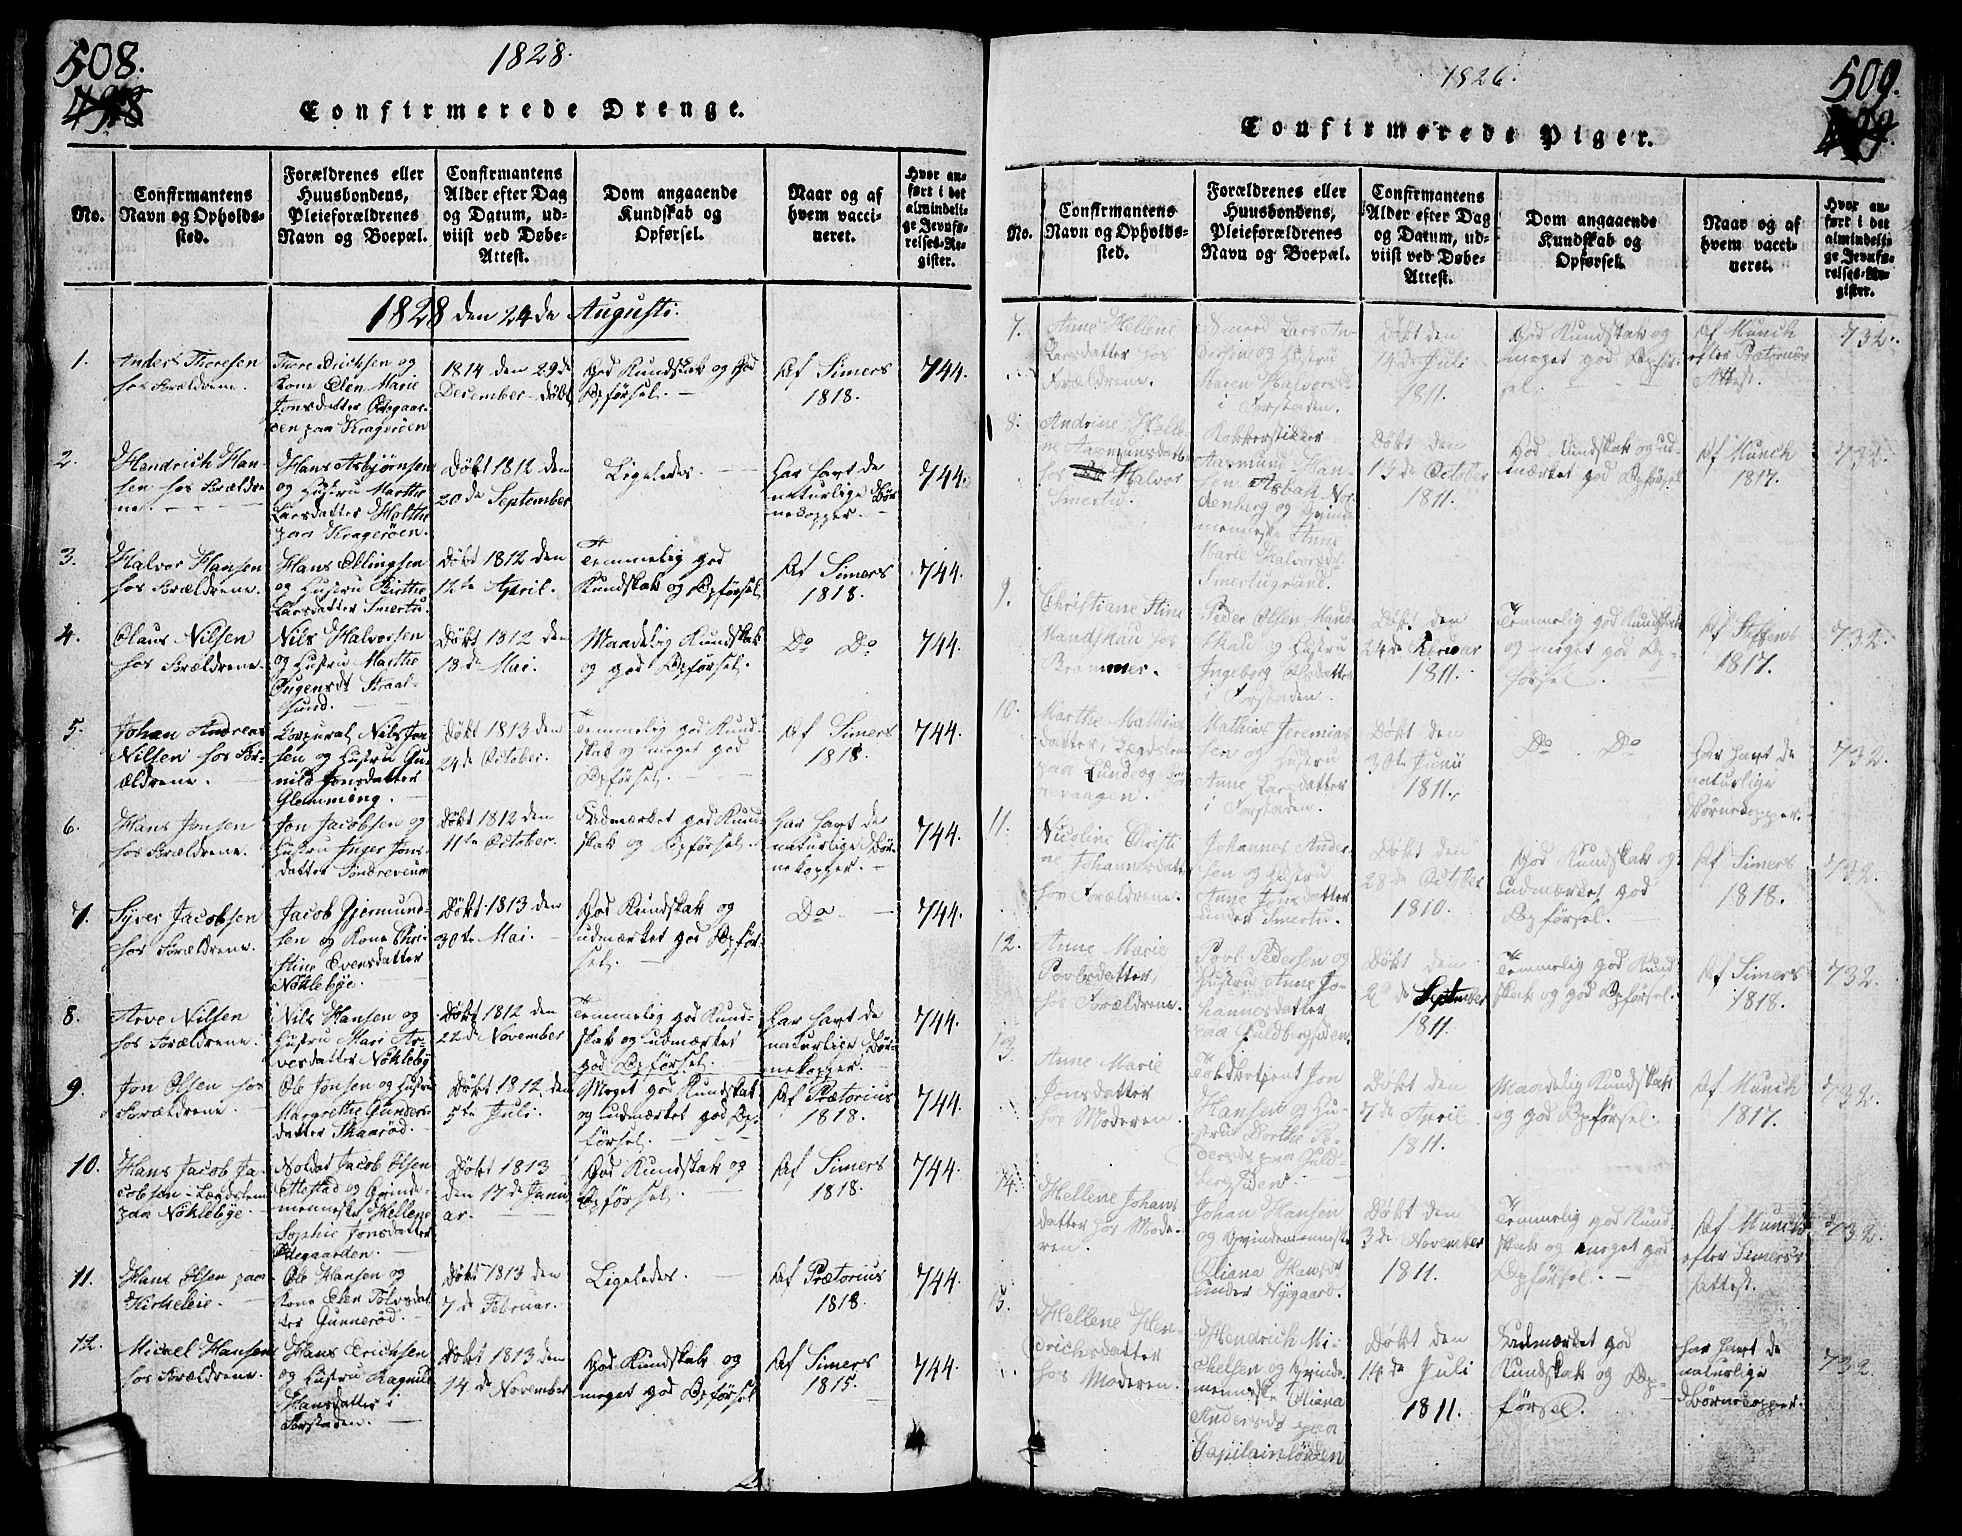 508.
498
1828.
Confirmerede Drenge.
No.
Confirmantens
Navn og Opholds-
sted.
Forældrenes eller
Huusbondens,
Pleieforældrenes
Navn og Boepæl.
Confirmantens
Alder efter Dag
og Datum, ud-
viist ved Døbe-
Attest.
Dom angaaende
Kundskab og
Opførsel.
Naar og af
hvem vacci-
neret.
Hvor an-
ført i det
almindeli-
ge Jevnfø-
relses-Re-
gister.
1828 den 24de Augusti.
1.
Anders Thoresen
hos Forældrene.
Thore Erichsen og
Kone Elen Marie
Jonsdatter Ødegaar-
den paa Kragerøen
1814 den 29de
December døbt
God Kundskab og God
Opførsel.
Af Simers
1818.
744.
2.
Hendrich Han-
sen hos Forældre-
ne.
Hans Asbjørnsen
og Hustru Marthe
Larsdatter
paa Kragerøen.
Døbt 1812 den
20de September
Ligeledes.
Har havt de
naturlige Bør-
nekopper.
744.
3.
Halvor Hansen
hos Forældrene.
Hans Ellingsen
og Hustru Birthe
Larsdatter Smertu.
Døbt 1812 den
12te April.
Temmelig god
Kundskab og Opførsel.
Af Simers
1818.
744.
4.
Olaus Nilsen
hos Forældrene.
Nils Halvorsen
og Hustru Marthe
Døbt 1812 den
18de Mai.
Maadelig Kundskab
og god Opførsel.
Do Do
744.
5.
Johan Andreas
Nilsen hos For-
ældrene.
Corporal Nils Jon-
sen og Hustru Gu-
nild Jonsdatter
Glemming.
Døbt 1813 den
24de October.
Temmelig god Kund-
skab og meget god
Opførsel.
Af Simers
1818.
744.
6.
Hans Jonsen
hos Forældrene.
Jon Jacobsen og
Hustru Inger Jons-
datter
Døbt 1812 den
11te October.
Udmærket god Kund-
skab og Opførsel.
Har havt de
naturlige Bør-
nekopper.
744.
7.
Syver Jacobsen
hos Forældrene.
Jacob Gjermund-
sen og Kone Chri-
stine Evensdatter
Nøklebye.
Døbt 1813 den
30te Mai.
God Kundskab og
udmærket god Opfør-
sel.
Do
744.
8.
Arve Nilsen
hos Forældrene.
Nils Hansen og
Hustru Mari Ar-
vesdatter Nøkleby
Døbt 1812 den
22de November
Temmelig god Kund-
skab og udmærket
god Opførsel.
Har havt de
naturlige Bør-
nekopper.
744.
9.
Jon Olsen hos
Forældrene.
Ole Jonsen og Hustru
Margrethe Gunders-
datter Skaarød.
Døbt 1812 den
5te Juli.
Meget god Kundskab
og udmærket god Op-
førsel.
Af Prætorius
1818.
744.
10.
Hans Jacob Ja-
cobsen Lægdslem
paa Nøklebye.
Soldat Jacob Olsen
Ellestad og Qvinde-
menneske Hellene
Sophie Jonsdatter
Ødegaarden.
Døbt 1813
den 17de Janu-
ar.
God Kundskab og
Opførsel.
Af Simers
1818.
744.
11.
Hans Olsen paa
Kirkeleie.
Ole Hansen og
Kone Elen Tolvsdat-
ter Gunnerød.
Døbt 1813 den
7de Februar.
Ligeledes.
Af Prætorius
1818.
744.
12.
Micael Hansen
hos Forældrene.
Hans Erichsen
og Hustru Ragnild
Hansdatter i
Forstaden.
Døbt 1813 den
14de November
God Kundskab og
meget god Opførsel
Af Simers
1815.
744.
509.
499
1826.
Confirmerede Piger.
No.
Confirmantens
Navn og Opholds-
sted.
Forældrenes eller
Huusbondens,
Pleieforældrenes
Navn og Boepæl.
Confirmantens
Alder efter Dag
og Datum, ud-
viist ved Døbe-
Attest.
Dom angaaende
Kundskab og
Opførsel.
Naar og af
hvem vacci-
neret.
Hvor an-
ført i det
almindeli-
ge Jevnfø-
relses-Re-
gister.
7.
Anne Hellene
Larsdatter hos
Forældrene.
Smed Lars An-
dersen og Hustru
Maren Halvorsdt
i Forstaden.
Døbt den
14de Juli
1811.
God Kundskab og
meget god Opfør-
sel.
Af Munch
efter Prætorius
Attest.
732.
8.
Andrine Helle-
ne Aasmundsdatter
hos Halvor
Smertu.
Aasmund Han-
sen Asbak Nor-
denberg og Qvinde-
menneske Anne
Marie Halvorsdt
Smertugrund.
Døbt den
13de October
1811.
God Kundskab og ud-
mærket god Opførsel
Af Munch
1817.
732.
9.
Christiane Stine
Mandskau hos
Brammer.
Peder Olsen Mand-
skau og Hustru
Ingeborg Olsdatter
i Forstaden.
Døbt den
24de Februar
1811.
Temmelig god Kundskab
og meget god Op-
førsel.
Af Steffens
1817.
732.
10.
Marthe Mathias-
datter, Lægdslem
paa Lunde og
Mathias Jeremias-
sen og Hustru
Anne Larsdatter
i Forstaden.
Døbt den
30te Junii
1811.
Do Do
Har havt de
naturlige
Børnekopper.
732.
11.
Nicoline Christi-
ne Johannesdatter
hos Forældrene.
Johannes Ander-
sen og Hustru
Anne Jonsdatter
under Smertu.
Døbt den
28de October
1810.
God Kundskab og
udmærket god
Opførsel.
Af Simers
1818.
732.
12.
Anne Marie
Povlsdatter,
hos Forældrene.
Povl Pedersen og
Hustru Anne Jo-
hannesdatter
paa Guldbergsiden.
Døbt den
September
1811.
Temmelig god Kund-
skab og god Opførsel.
Af Simers
1818.
732.
13.
Anne Marie
Jonsdatter
hos Moderen.
Toldbetjent Jon
Hansen og Hu-
stru Dorthe Pe-
dersdt paa Guld-
bergsiden.
Døbt den
7de April
1811.
Maadelig Kundskab
og god Opførsel.
Af Munch
1817.
732.
14.
Hellene Johans-
datter hos Mode-
ren.
Johan Hansen
og Qvindemenneske
Eliana Hansdt
under Nygaard.
Døbt den
3de November
1811.
Temmelig god Kund-
skab og meget god
Opførsel.
Af Munch
efter Simers's
Attest.
732.
15.
Hellene Hen-
drichsdatter
hos Moderen.
Hendrich Mi-
chelsen og Qvinde-
menneske Eliana
Andersdt paa
Døbt den
14de Juli
1811.
Udmærket god
Kundskab og Op-
førsel.
Har havt de
naturlige
Børnekopper.
732.